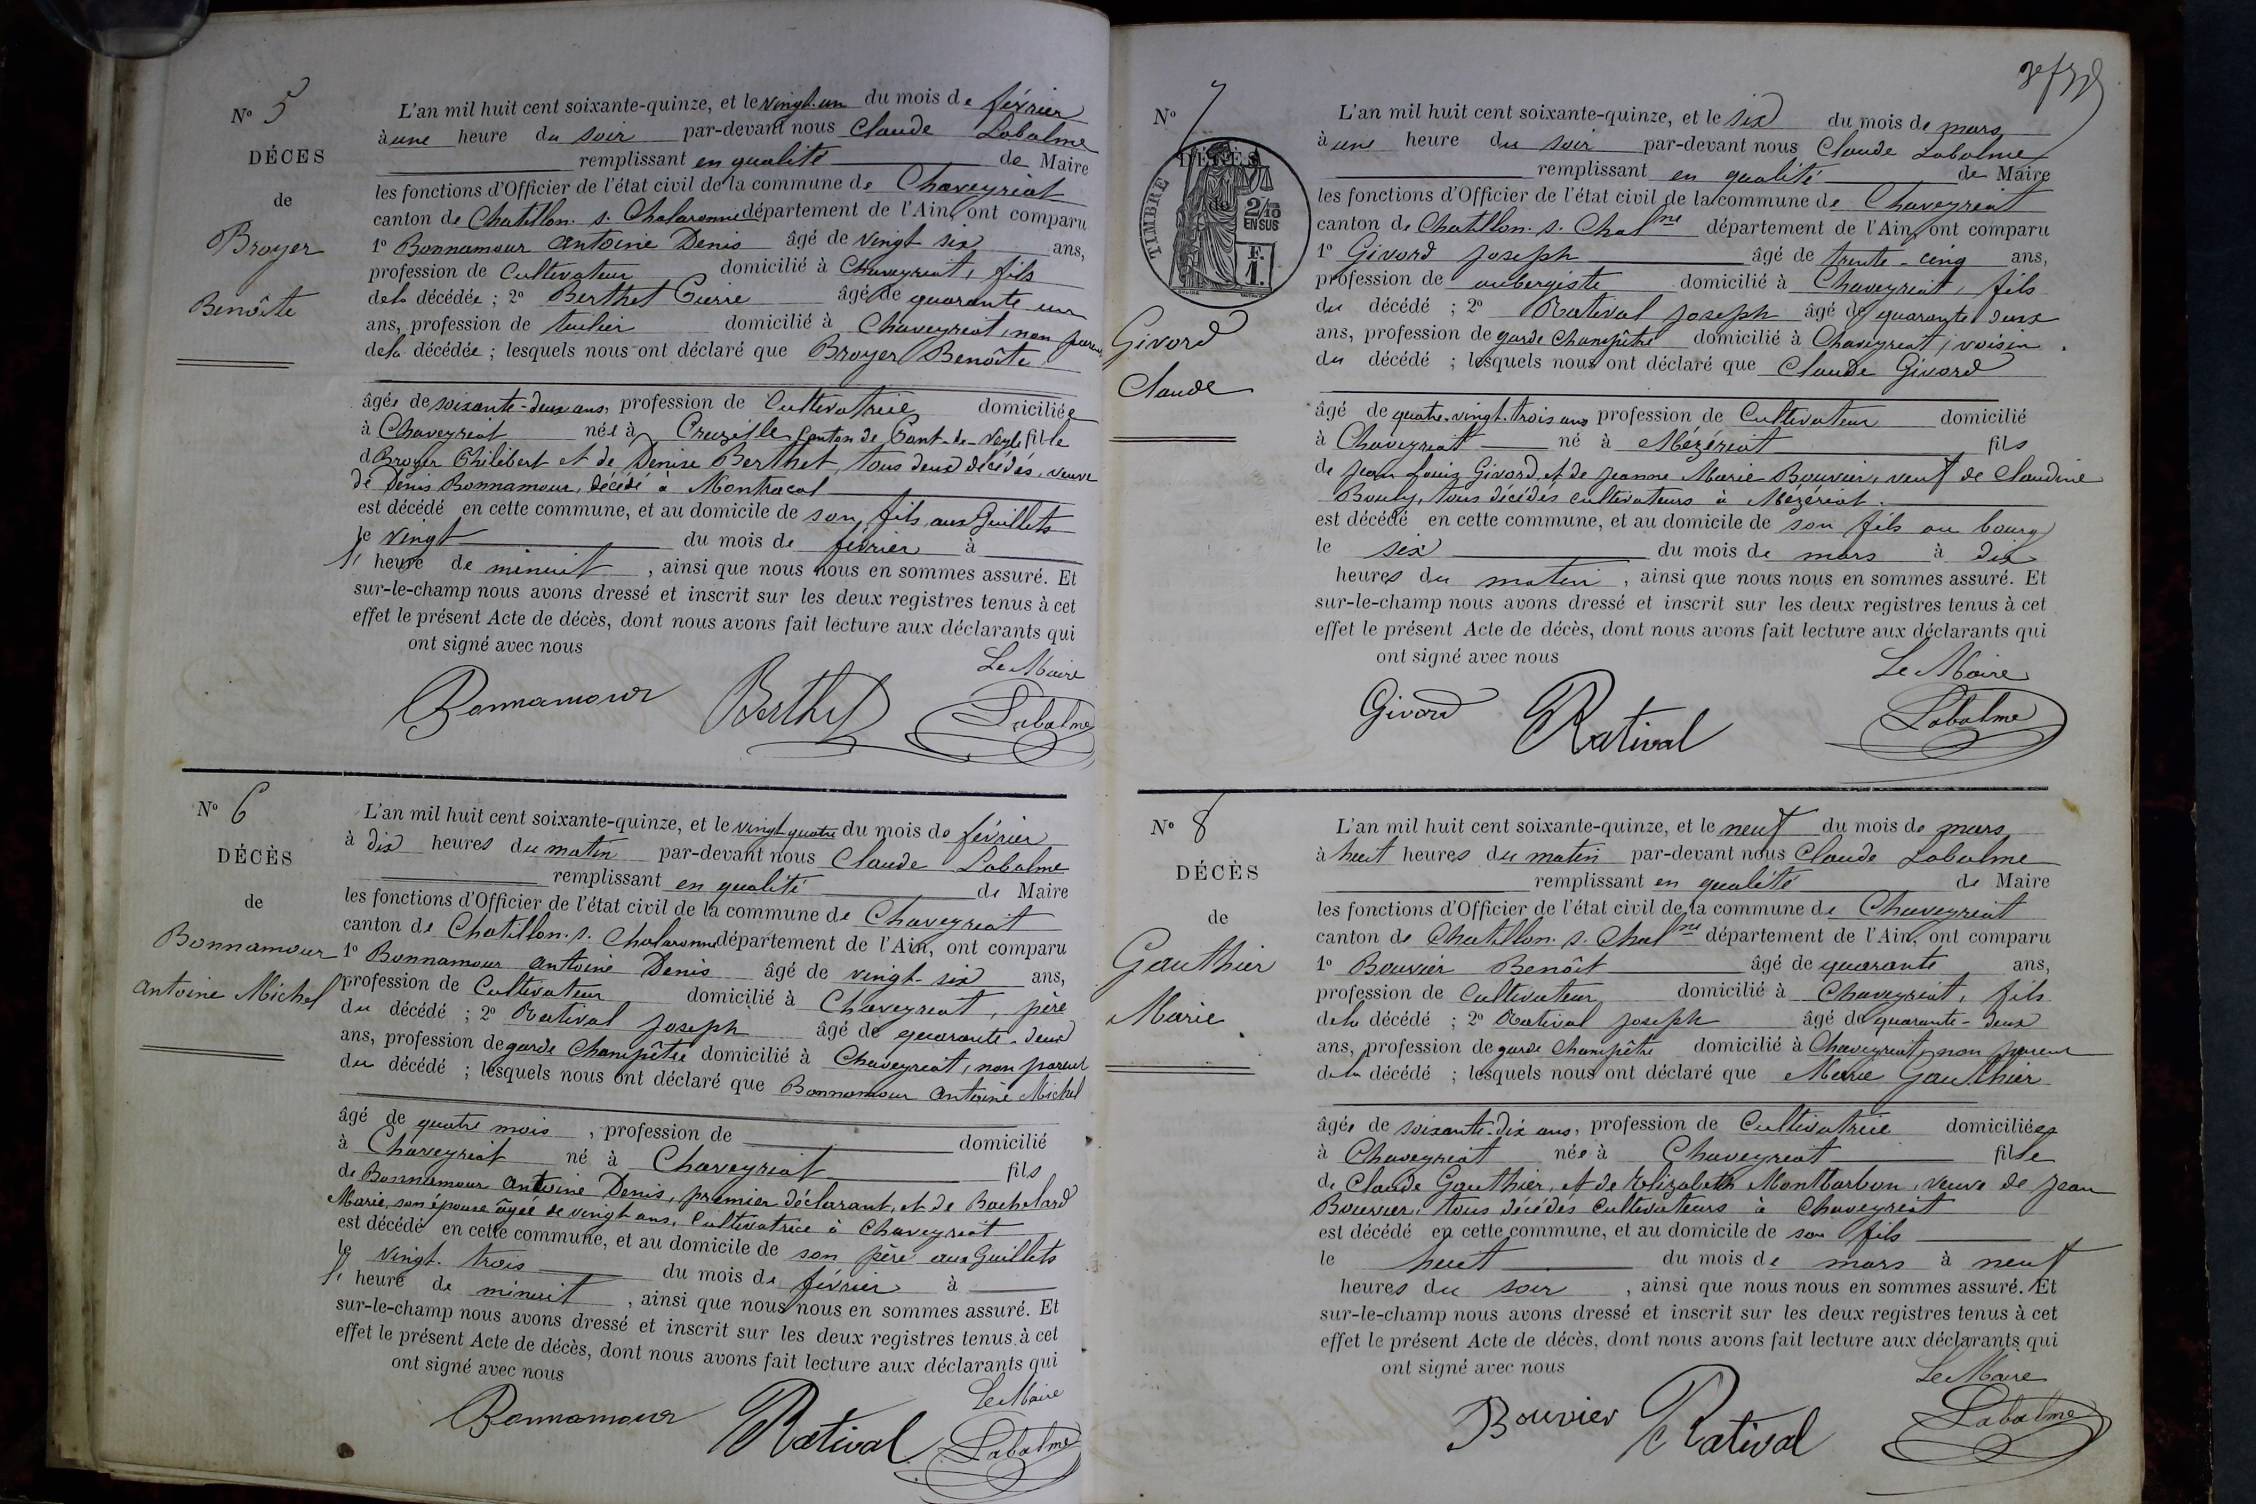 N° 5
DÉCES
de
Broyer
Benoîte
L'an mil huit cent soixante-quinze, et le vingt-un du mois de février
à une heure du soir par-devant nous Claude Labalme
remplissant en qualité de Maire
les fonctions d'Officier de l'état civil de la commune de Chaveyriat
canton de Chatillon. s. Chalaronne département de l'Ain, ont comparu
1° Bonnamour Antoine Denis âgé de vingt six ans,
profession de Cultivateur domicilié à Chaveyriat, fils
de la décédée ; 2° Berthet Pierre âgé de quarante un
ans, profession de tuilier domicilié à Chaveyriat, non parent
de la décédée ; lesquels nous ont déclaré que Broyer Benoîte
âgée de soixante-deux ans, profession de Cultivatrice domiciliée
à Chaveyriat née à Cruzilles canton de Pont-de-Veyle fille
de Broyer Philibert et de Denise Berthet, tous deux décédés, veuve
de Denis Bonnamour, décédé à Montracol
est décédé en cette commune, et au domicile de son fils, aux Guillets
le vingt du mois de février à
l' heure de minuit , ainsi que nous nous en sommes assuré. Et
sur-le-champ nous avons dressé et inscrit sur les deux registres tenus à cet
effet le présent Acte de décès, dont nous avons fait lecture aux déclarants qui
ont signé avec nous
Le Maire
Bonnamour Berthet Labalme
N° 6
DÉCÈS
de
Bonnamour
Antoine Michel
L'an mil huit cent soixante-quinze, et le vingt-quatre du mois de février
à dix heures du matin par-devant nous Claude Labalme
remplissant en qualité de Maire
les fonctions d'Officier de l'état civil de la commune de Chaveyriat
canton de Chatillon. s. Chalaronne département de l'Ain, ont comparu
1° Bonnamour Antoine Denis âgé de vingt-six ans,
profession de Cultivateur domicilié à Chaveyriat, père
du décédé ; 2° Ratival Joseph âgé de quarante-deux
ans, profession de garde Champêtre domicilié à Chaveyriat, non parent
du décédé ; lesquels nous ont déclaré que Bonnamour Antoine Michel
âgé de quatre mois , profession de domicilié
à Chaveyriat né à Chaveyriat fils
de Bonnamour Antoine Denis, premier déclarant, et de Bachelard
Marie, son épouse âgée de vingt ans, Cultivatrice à Chaveyriat
est décédé en cette commune, et au domicile de son père aux Guillets
le vingt. trois du mois de février à
l' heure de minuit , ainsi que nous nous en sommes assuré. Et
sur-le-champ nous avons dressé et inscrit sur les deux registres tenus à cet
effet le présent Acte de décès, dont nous avons fait lecture aux déclarants qui
ont signé avec nous
Le Maire
Bonnamour Ratival Labalme
N° 7
DÉCÈS
de
TIMBRE
2/10
EN SUS
F.
1.
Givord
Claude
L'an mil huit cent soixante-quinze, et le six du mois de mars
à une heure du soir par-devant nous Claude Labalme
remplissant en qualité de Maire
les fonctions d'Officier de l'état civil de la commune de Chaveyriat
canton de Chatillon. s. Chalne département de l'Ain, ont comparu
1° Givord Joseph âgé de trente-cinq ans,
profession de aubergiste domicilié à Chaveyriat, fils
du décédé ; 2° Ratival Joseph âgé de quarante deux
ans, profession de garde Champêtre domicilié à Chaveyriat, voisin
du décédé ; lesquels nous ont déclaré que Claude Givord
âgé de quatre-vingt-trois ans profession de Cultivateur domicilié
à Chaveyriat né à Mézériat fils
de Jean Louis Givord, et de Jeanne Marie Bouvier, veuf de Claudine
Bouly, tous décédés cultivateurs à Mézériat.
est décédé en cette commune, et au domicile de son fils au bourg
le six du mois de mars à dix
heures du matin , ainsi que nous nous en sommes assuré. Et
sur-le-champ nous avons dressé et inscrit sur les deux registres tenus à cet
effet le présent Acte de décès, dont nous avons fait lecture aux déclarants qui
ont signé avec nous
Le Maire
Givord Ratival Labalme
N° 8
DÉCÈS
de
Gauthier
Marie
L'an mil huit cent soixante-quinze, et le neuf du mois de mars
à huit heures du matin par-devant nous Claude Labalme
remplissant en qualité de Maire
les fonctions d'Officier de l'état civil de la commune de Chaveyriat
canton de Chatillon. s. Chalne département de l'Ain, ont comparu
1° Bouvier Benoît âgé de quarante ans,
profession de Cultivateur domicilié à Chaveyriat, fils
de la décédé ; 2° Ratival Joseph âgé de quarante-deux
ans, profession de garde Champêtre domicilié à Chaveyriat, non parent
de la décédé ; lesquels nous ont déclaré que Marie Gauthier
âgée de soixante-dix ans, profession de Cultivatrice domiciliée
à Chaveyriat née à Chaveyriat fille
de Claude Gauthier, et de Elizabeth Montbarbon, veuve de Jean
Bouvier, tous décédés Cultivateurs à Chaveyriat
est décédé en cette commune, et au domicile de son fils
le huit du mois de mars à neuf
heures du soir , ainsi que nous nous en sommes assuré. Et
sur-le-champ nous avons dressé et inscrit sur les deux registres tenus à cet
effet le présent Acte de décès, dont nous avons fait lecture aux déclarants qui
ont signé avec nous
Le Maire
Bouvier Ratival Labalme